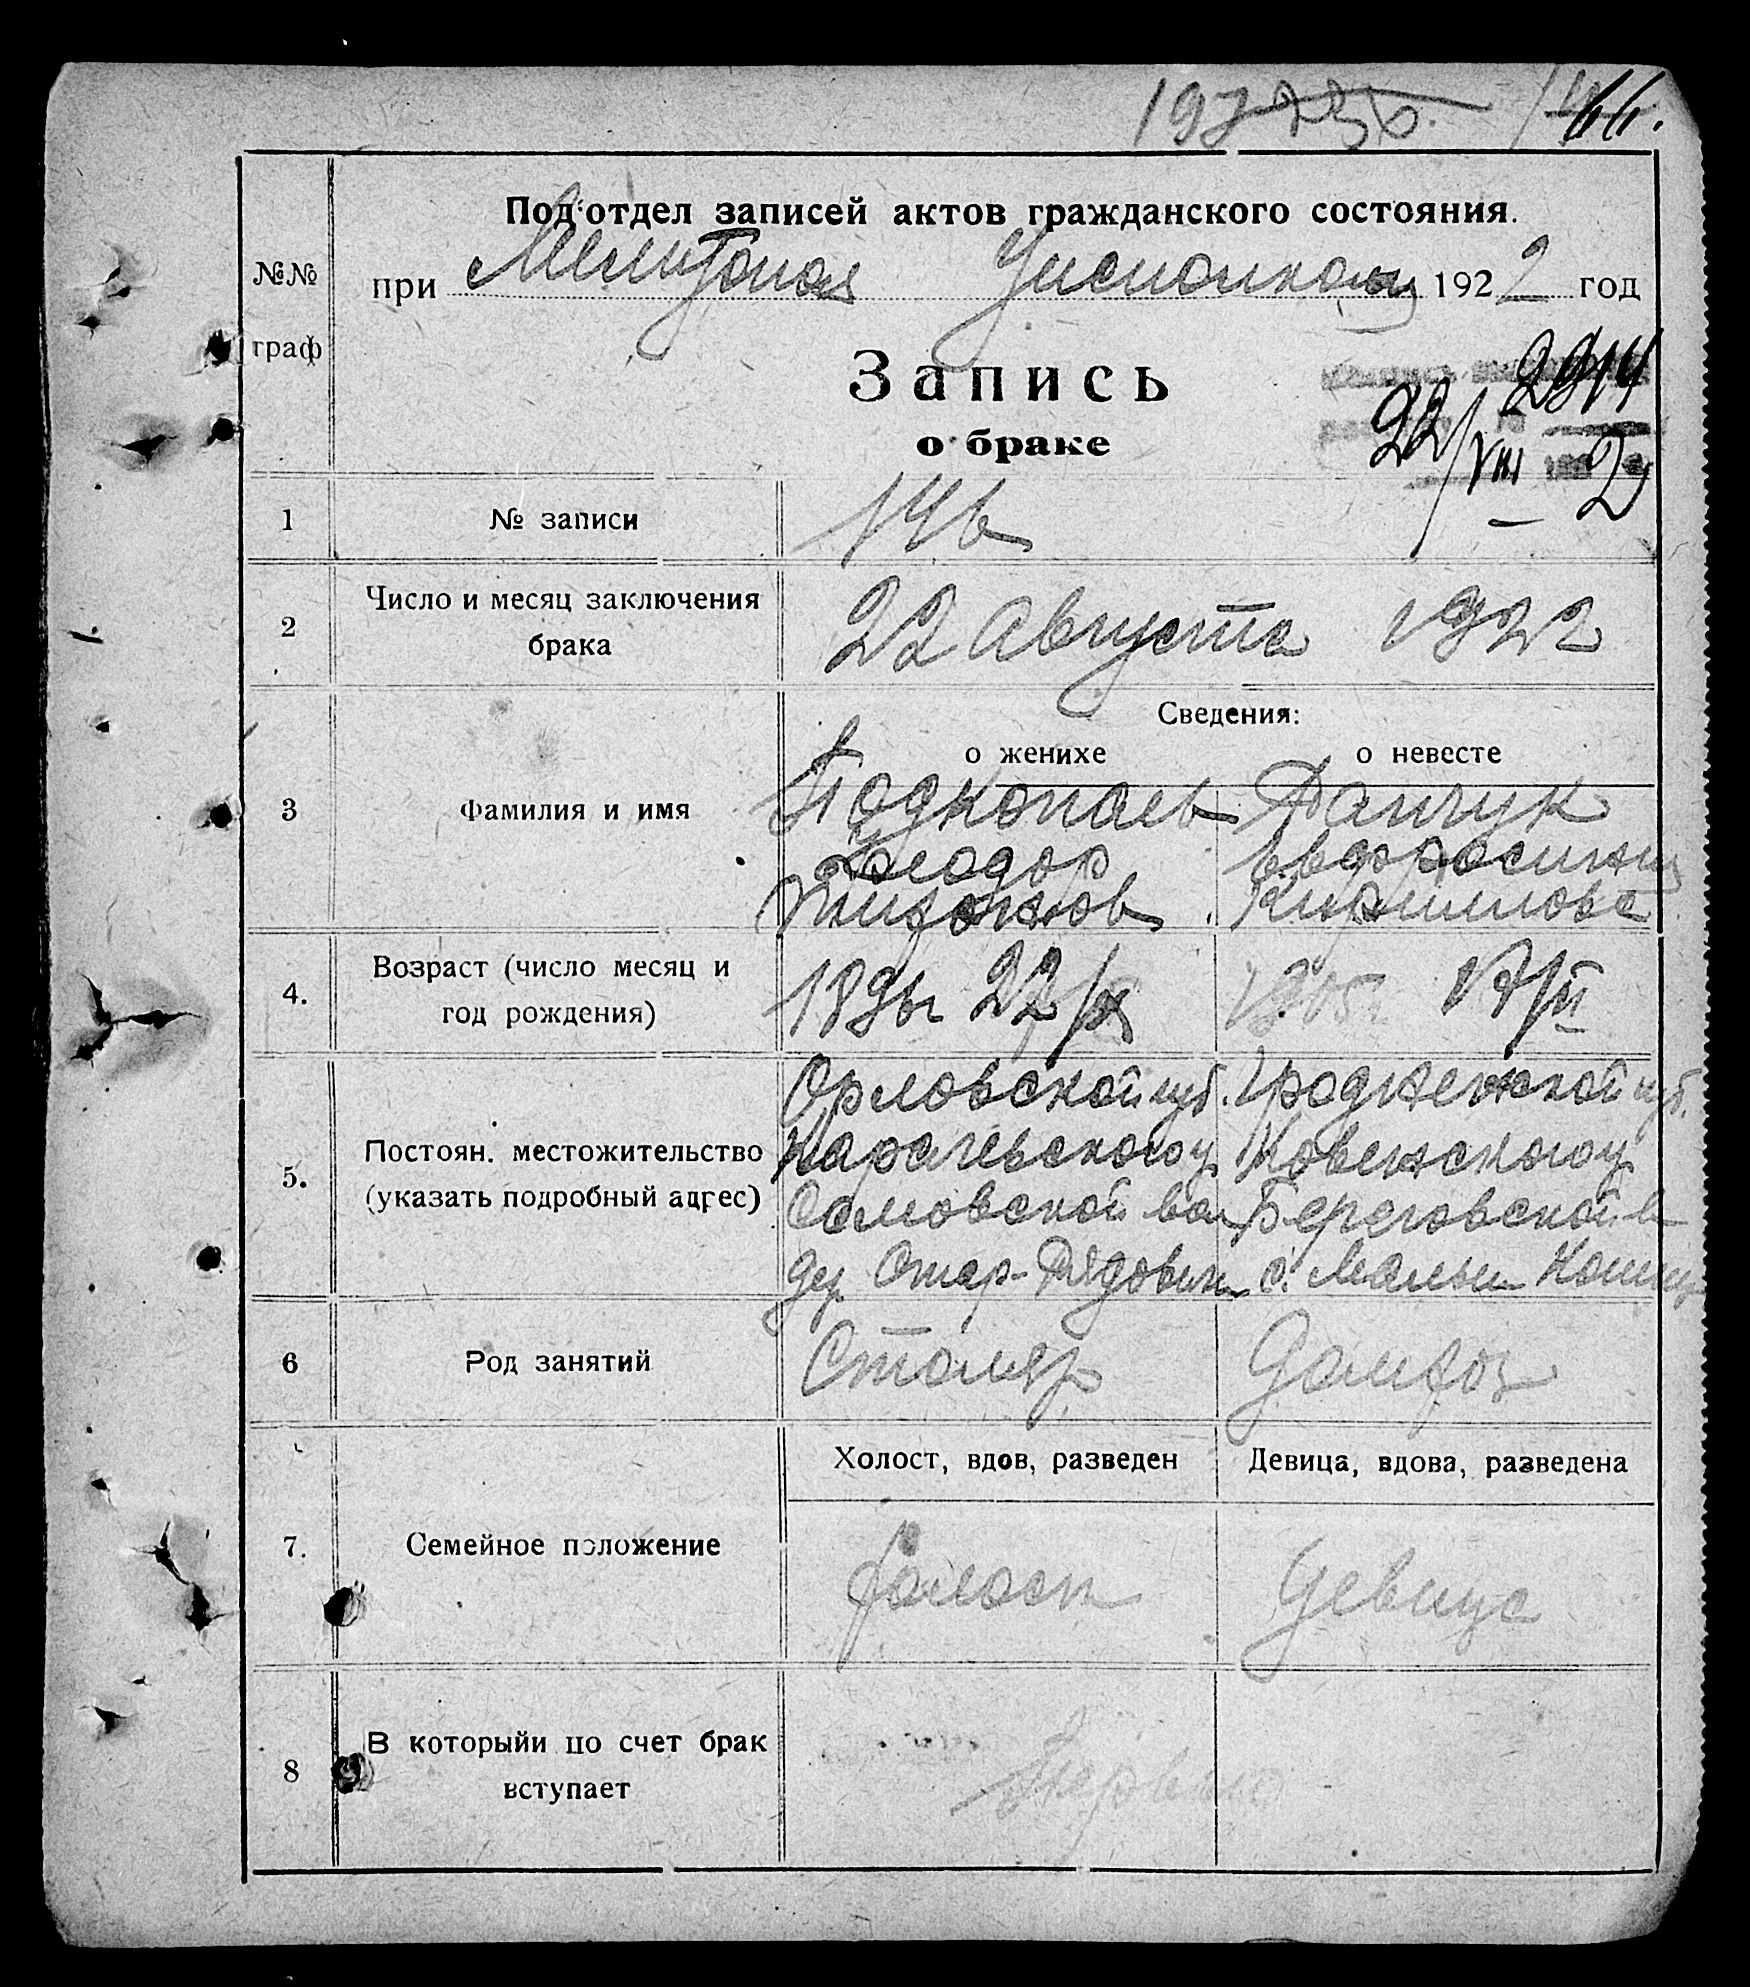 197
66.
Под'отдел записей актов гражданского состояния.
№№ граф
при Мелитопол Уисполкоме 1922 год
Запись
о браке
2914
22/VIII 2
1 № записи 146
2 Число и месяц заключения
брака
22 Августа 1922
Сведения:
о женихе о невесте
3 Фамилия и имя
Подкопаев Панчук
Феодор Евфросиния
Тихонов Кириллова
4. Возраст (число месяц и
год рождения)
22/IX 1905 г
5. Постоян. местожительство
(указать подробный адрес)
Орловской губ. Гродненской губ.
Карачевского у Ковенского у
вол Береговской в
дер.
6 Род занятий Столяр Домхоз
Холост, вдов, разведен Девица, вдова, разведена
7. Семейное положение холост девица
8 В которыйи по счет брак
вступает
Первый